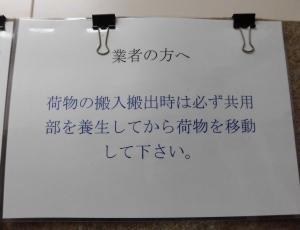 業者の方へ
荷物の搬入搬出時は必ず共用
部を養生してから荷物を移動
して下さい。